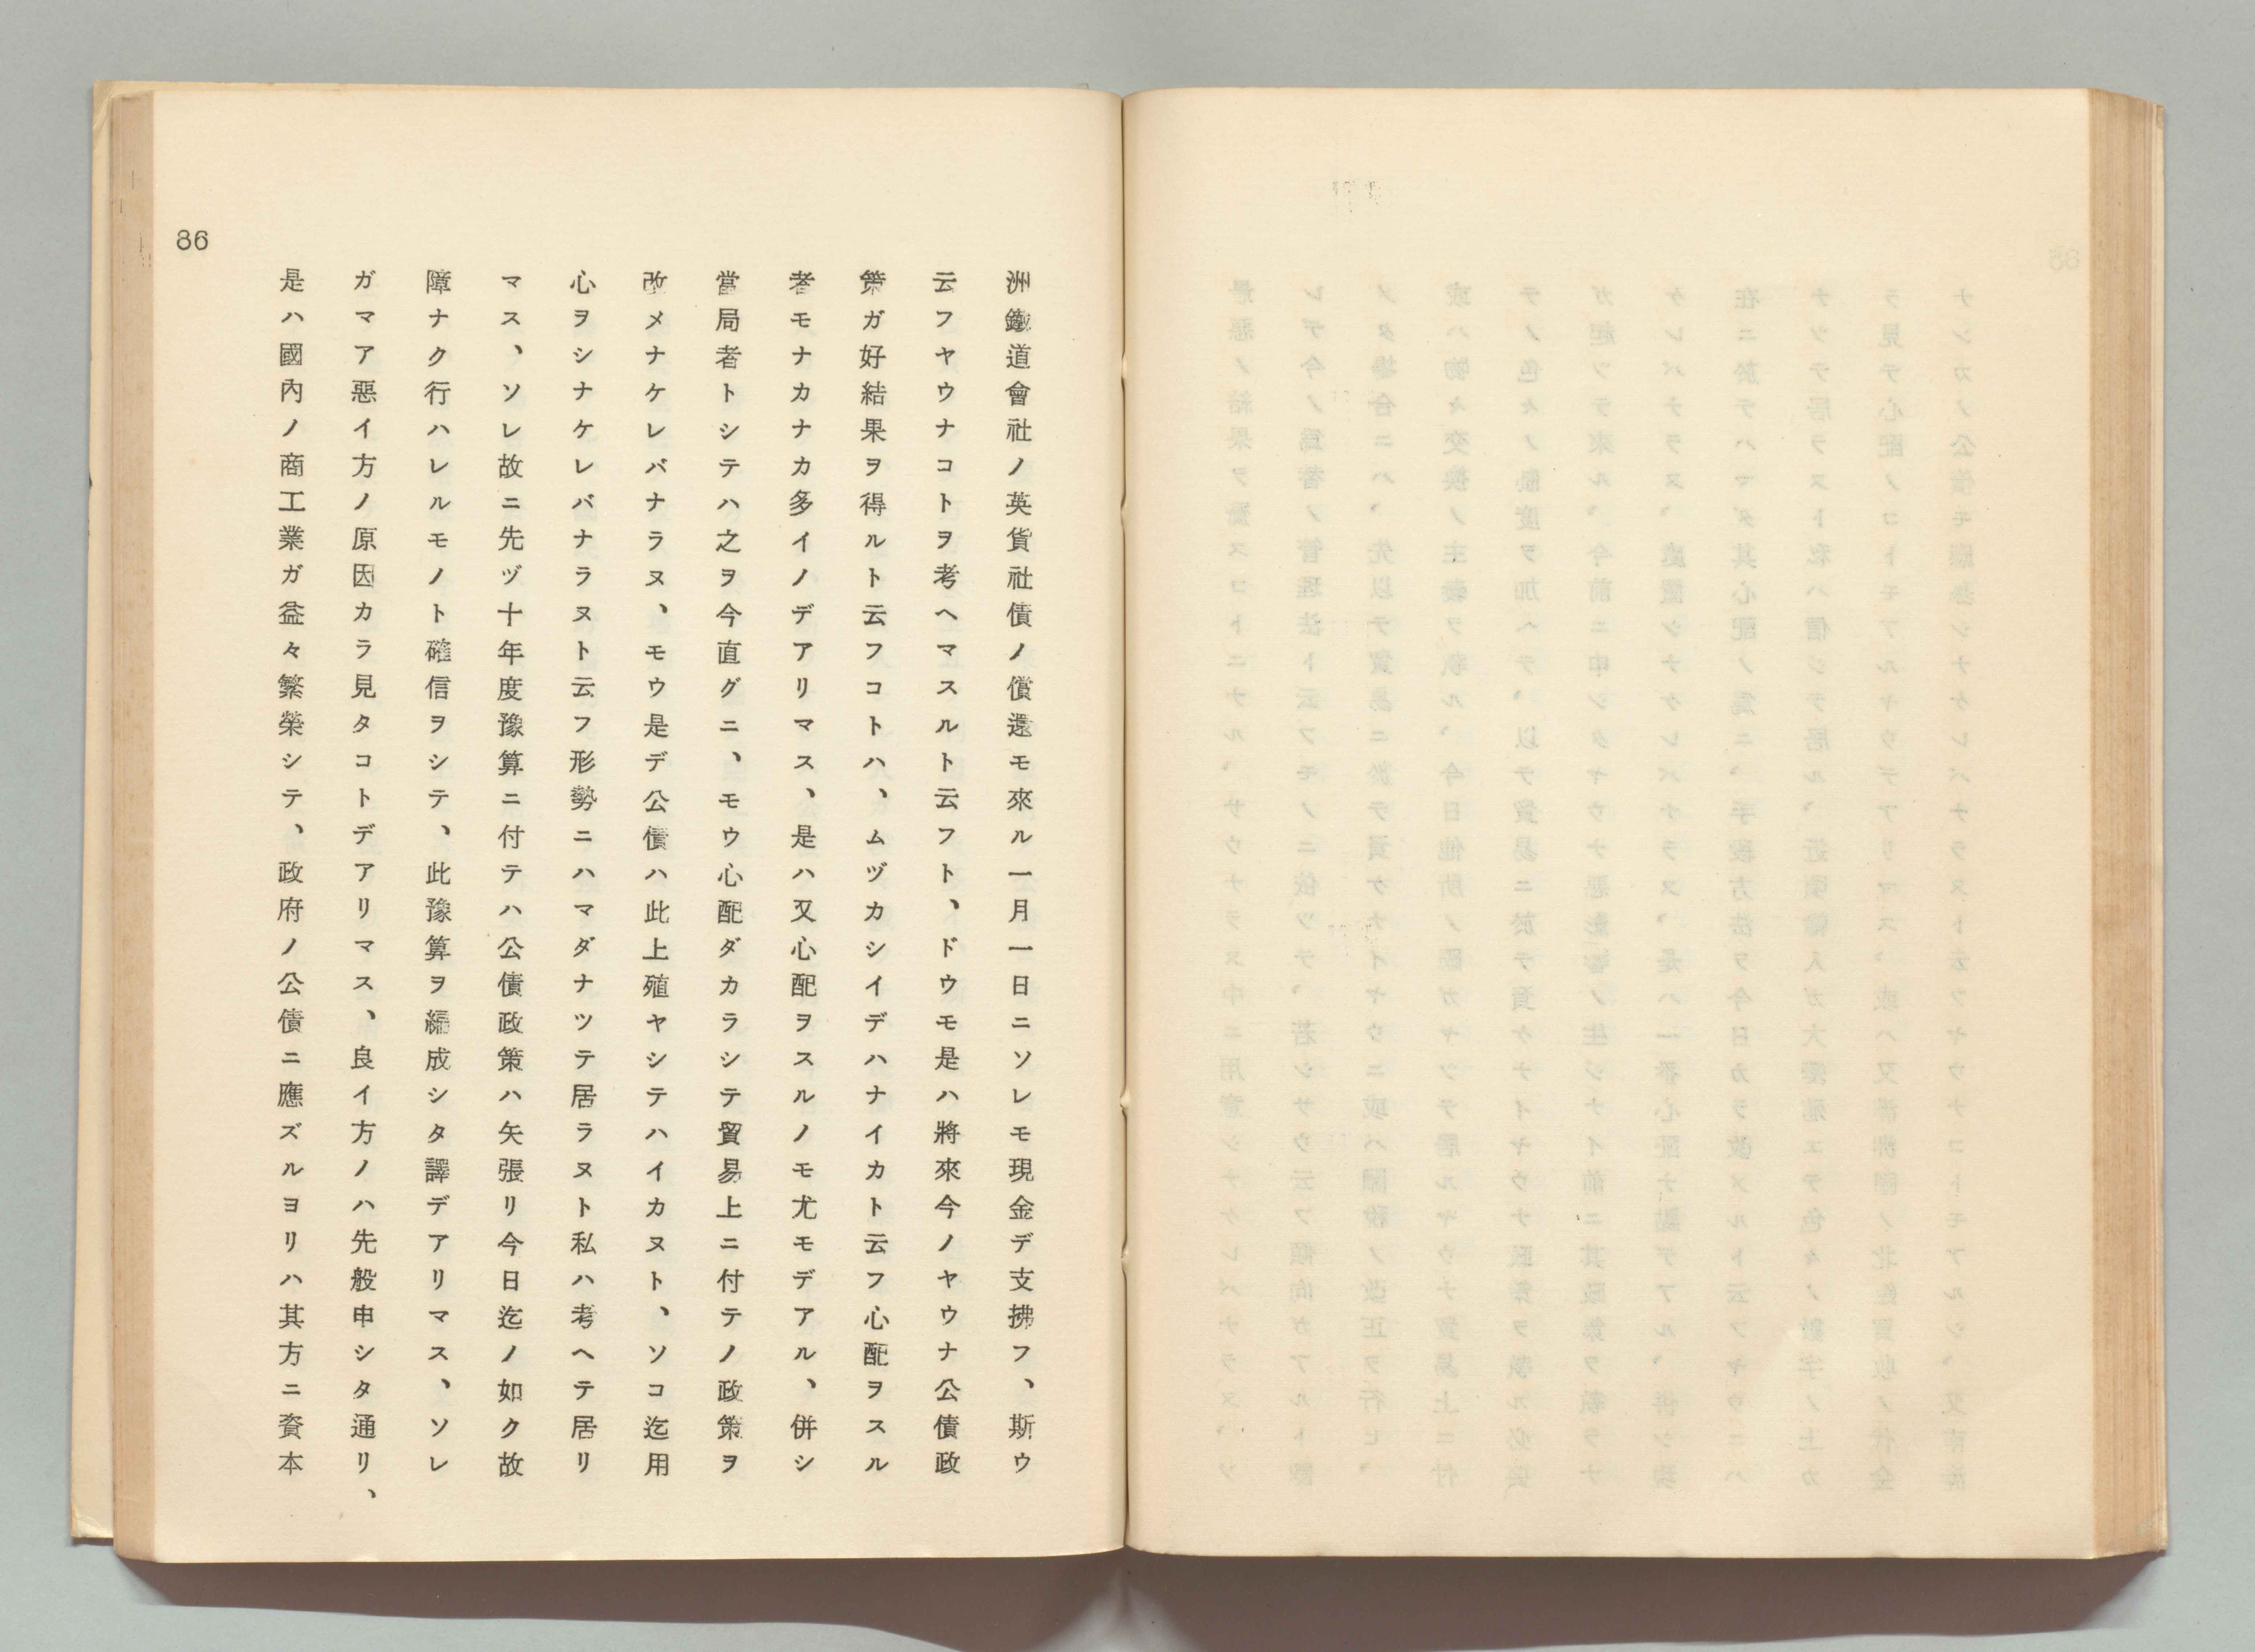 86
洲鐵道會社ノ英貨社債ノ償還モ來ル一月一日ニソレモ現金デ支拂フ、斯ウ
云フヤウナコトヲ考ヘマスルト云フト、ドウモ是ハ將來今ノヤウナ公債政
策ガ好結果ヲ得ルト云フコトハ、ムヅカシイデハナイカト云フ心配ヲスル
者モナカナカ多イノデアリマス、是ハ又心配ヲスルノモ尤モデアル、併シ
當局者トシテハ之ヲ今直グニ、モウ心配ダカラシテ貿易上ニ付テノ政策ヲ
改メナケレバナラヌ、モウ是デ公債ハ此上殖ヤシテハイカヌト、ソコ迄用
心ヲシナケレバナラヌト云フ形勢ニハマダナツテ居ラヌト私ハ考ヘテ居リ
マス、ソレ故ニ先ヅ十年度豫算ニ付テハ公債政策ハ矢張リ今日迄ノ如ク故
障ナク行ハレルモノト確信ヲシテ、此豫算ヲ編成シタ譯デアリマス、ソレ
ガマア惡イ方ノ原因カラ見タコトデアリマス、良イ方ノハ先般申シタ通リ、
是ハ國內ノ商工業ガ益々繁榮シテ、政府ノ公債ニ應ズルヨリハ其方ニ資本